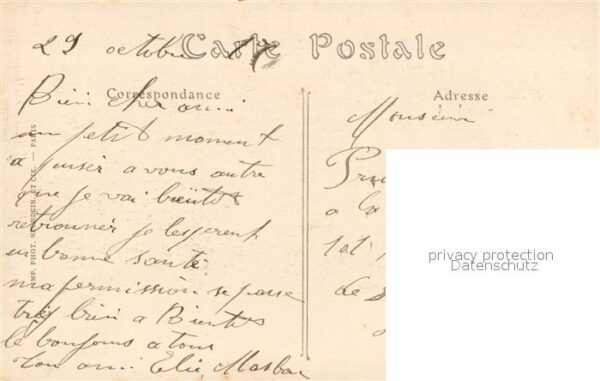 29 octobre 17
Carte Postale
Correspondance
Adresse
Bien cher ami
un petit moment
a puiser a vous autre
que je vai bientot
retrouner je lesperent
en bonne santé.
ma permission se passe
tres bien a Bientot
le bonjons a tous
ton ami Elie
Monsieur
Pru
a
tat
de
IMP. PHOT. NEURDEIN ET CIE. — PARIS
privacy protection
Datenschutz